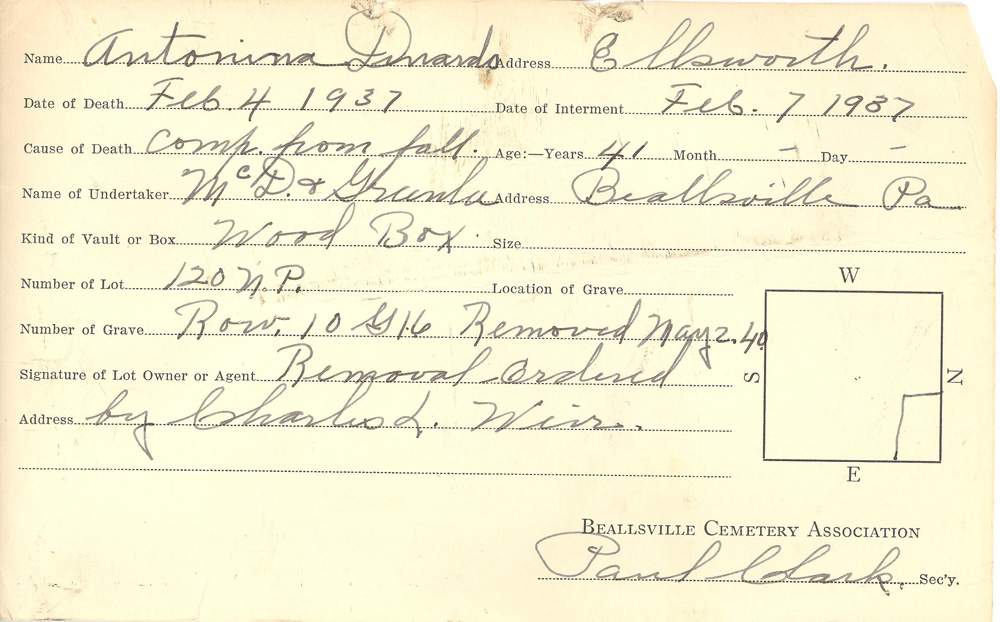 Name Antonina Dinardo Address Ellsworth.
Date of Death Feb. 4 1937 Date of Interment Feb. 7 1937
Cause of Death Comp. from fall. Age:—Years 41 Month – Day –
Name of Undertaker McD. & Greenlee Address Beallsville Pa
Kind of Vault or Box Wood Box. Size
Number of Lot 120 N.P. Location of Grave
W
Number of Grave Row. 10 G 16 Removed May 2. 40
Signature of Lot Owner or Agent Removal Ordered
S N
Address by Charles L. Weir.
E
BEALLSVILLE CEMETERY ASSOCIATION
Paul Clark, Sec'y.